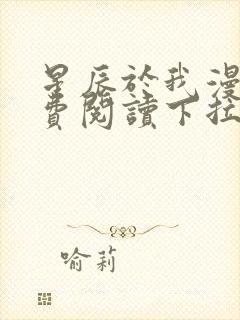 星辰於我漫
費閱讀下拉
喻莉